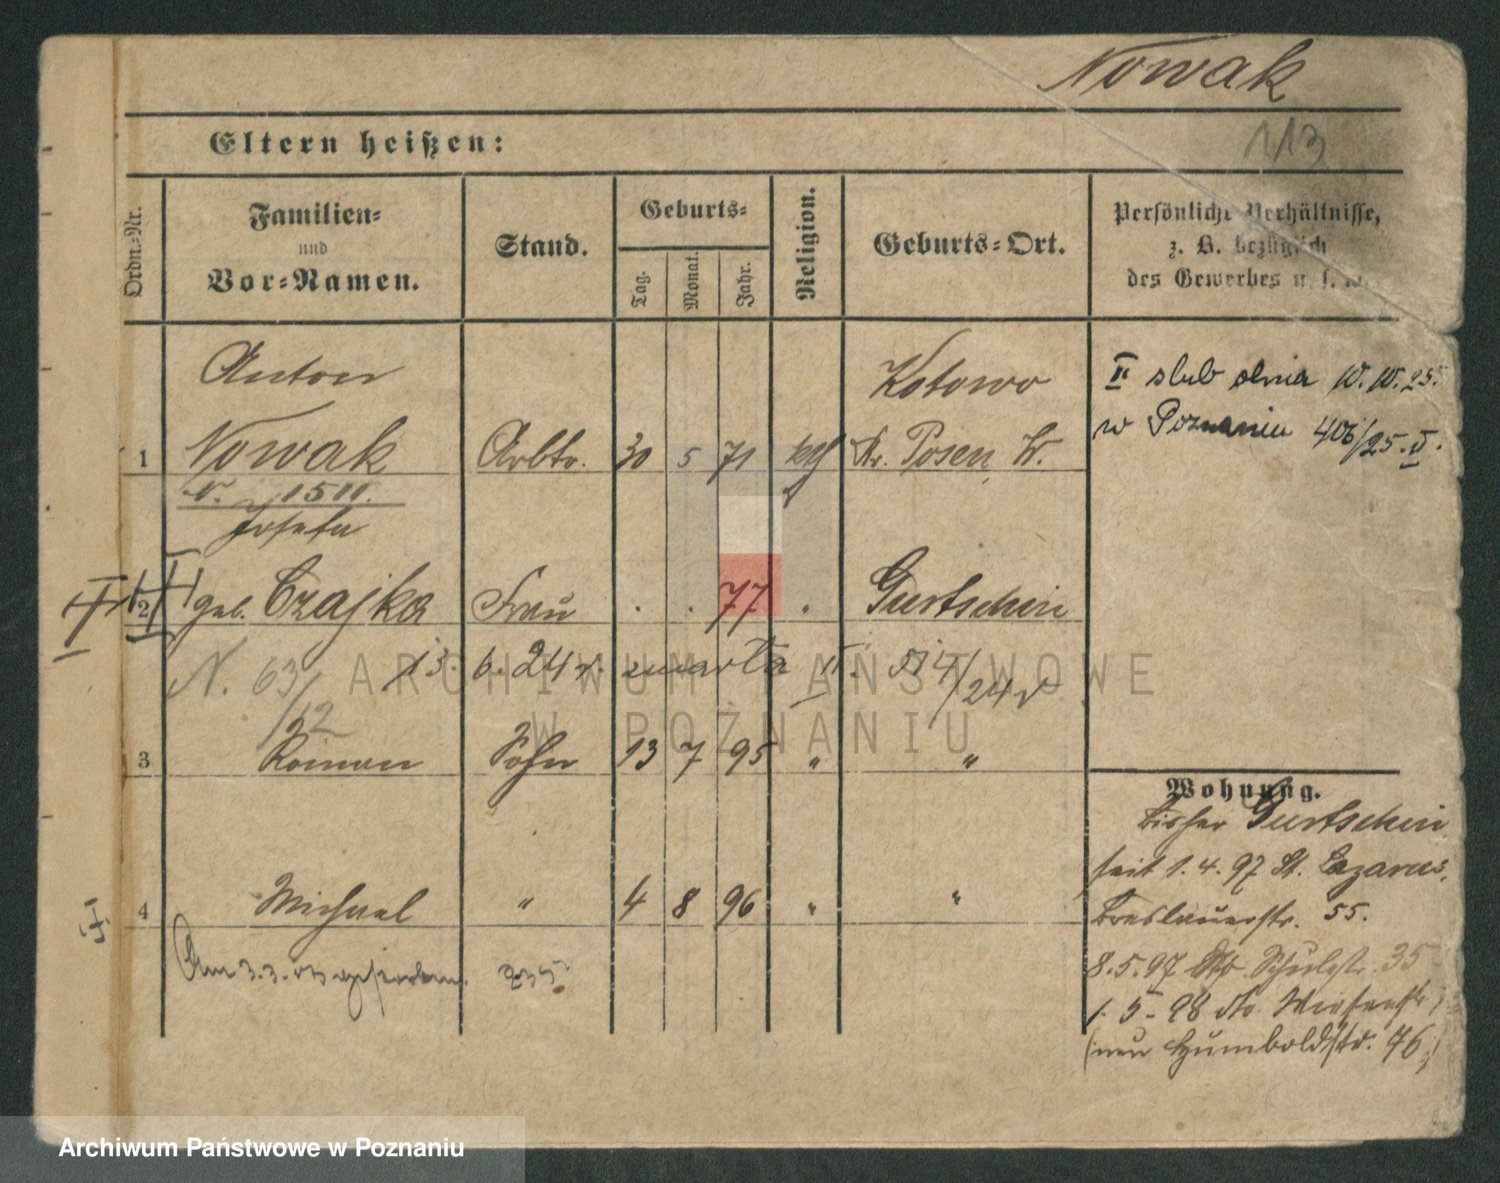 Nowak
113
Eltern heißen:
Ordn.-Nr.
Familien-
und
Vor-Namen.
Stand.
Geburts-
Tag.
Monat.
Jahr.
Religion.
Geburts-Ort.
Persönliche Verhältnisse,
z. B. bezüglich
des Gewerbes u. s. w.
1 Anton
Nowak Arbtr. 30 5 71 kth Kotowo
Kr. Posen W.
II slub dnia 10. 10. 25.
w Poznaniu 406/25. II.
v. 1511.
Josefa
2 geb. Czajka Frau . . 77 . Gurtschin
N. 63/12
13. 6. 24 r. umarła II. 514/24 r
3 Roman Sohn 13 7 95 " "
4 Michael " 4 8 96 " "
Am 3.3. 03 gestorben. 235
Wohnung.
bisher Gurtschin
seit 1. 4. 97 St. Lazarus,
Breslauerstr. 55.
8. 5. 97 dto. Schulstr. 35
1. 5. 98 dto. Wiesenstr.
(neu Humboldstr. 76)
ARCHIWUM PAŃSTWOWE
W POZNANIU
Archiwum Państwowe w Poznaniu